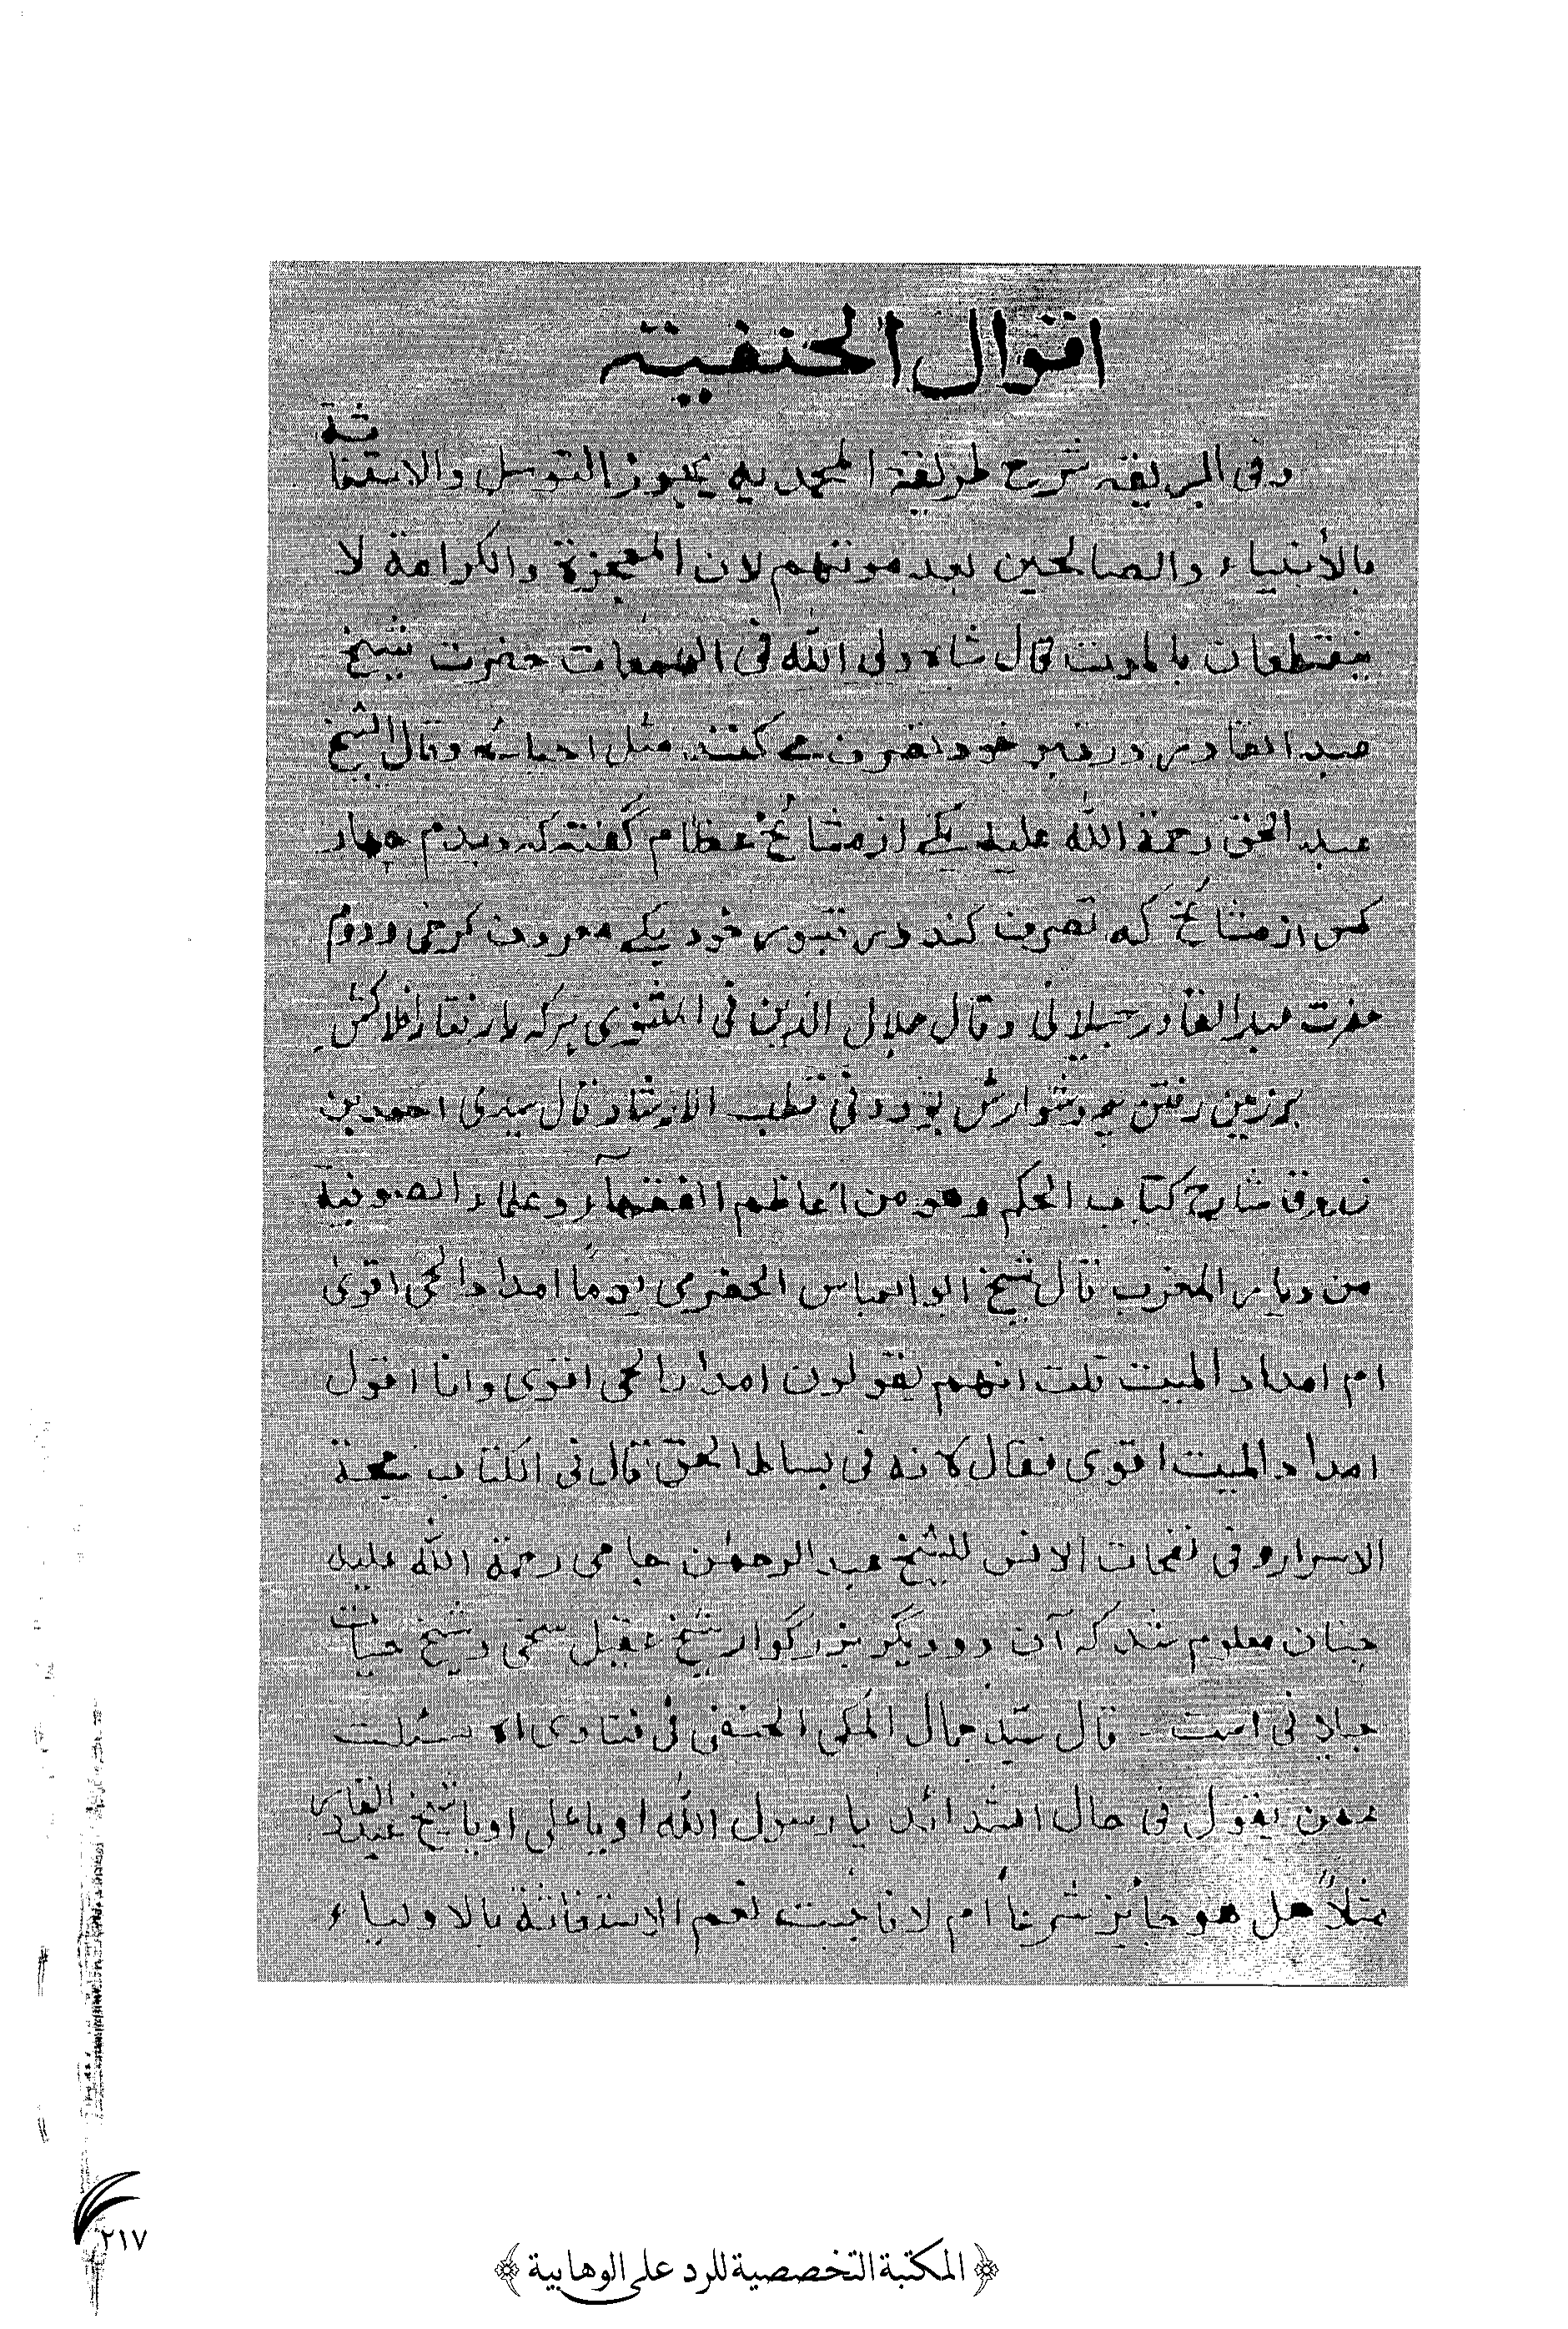 اقوال الحنفية
وفى البريقه شرح طريقة المحمديه يجوز التوسل والاستغاثة
بالأنبياء والصالحين بعد موتهم لان المعجزة والكرامة لا
ينقطعان بالموت قال شاه ولى الله فى الهمعات حضرت شيخ
عبد القادر در قبر خود تصرف مے كنند مثل احيائه وقال الشيخ
عبد الحق رحمة الله عليه يكے از مشائخ عظام گفته كه ديدم چهار
كس از مشائخ كه تصرف كند در قبور خود يكے معروف كرخى ودوم
حضرت عبد القادر جيلانى وقال جلال الدين فى المثنوى
بر زمين رفتن چه دشوارش بود وفى قطب الارشاد قال سيدى احمد بن
زروق شارح كتاب الحكم وهو من اعاظم الفقهآء وعلماء الصوفية
من ديار المغرب قال شيخ ابو العباس الحضرمى يوما امداد الحى اقوى
ام امداد الميت قلت انهم يقولون امداد الحى اقوى وانا اقول
امداد الميت اقوى فقال لانه فى بساط الحق قال فى الكتاب بهجة
الاسرار وفى نفحات الانس للشيخ عبد الرحمٰن جامى رحمة الله عليه
چنان معلوم شد كه آن دو ديگر بزرگوار شيخ عقيل سمجى وشيخ حيات
است - قال سيد جمال المكى الحنفى فى فتاوى اه سئلت
عمن يقول فى حال الشدائد يا رسول الله او يا على او يا شيخ عبد القادر
مثلاً هل هو جائز شرعاً ام لا فاجبت نعم الاستغاثة بالاولياء
٢١٧
﴿المكتبة التخصصية للرد على الوهابية﴾